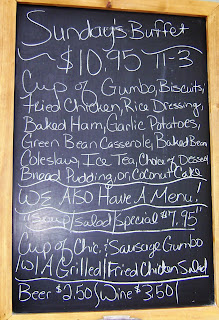 Sunday's Buffet
~$10.95 11-3
Cup of Gumbo, Biscuits,
Fried Chicken, Rice Dressing,
Baked Ham, Garlic Potatoes,
Green Bean Casserole, Baked Bean
Coleslaw, Ice Tea, Choice of Dessert
Bread Pudding, or, Coconut Cake
We Also Have A Menu!
"Soup/Salad/Special $7.95"
Cup of Chic. & Sausage Gumbo
W/ A Grilled/Fried Chicken Salad
Beer $2.50/Wine $3.50/